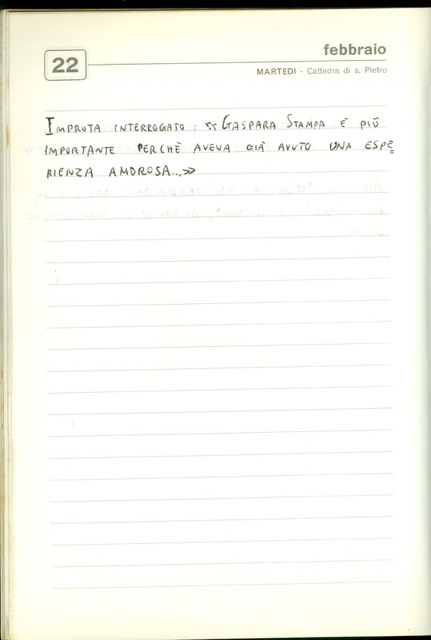 febbraio
22
MARTEDI - Cattedra di s. Pietro
IMPROTA INTERROGATO : « GASPARA STAMPA E PIÙ
IMPORTANTE PERCHÈ AVEVA GIÀ AVUTO UNA ESPE
RIENZA AMOROSA...»